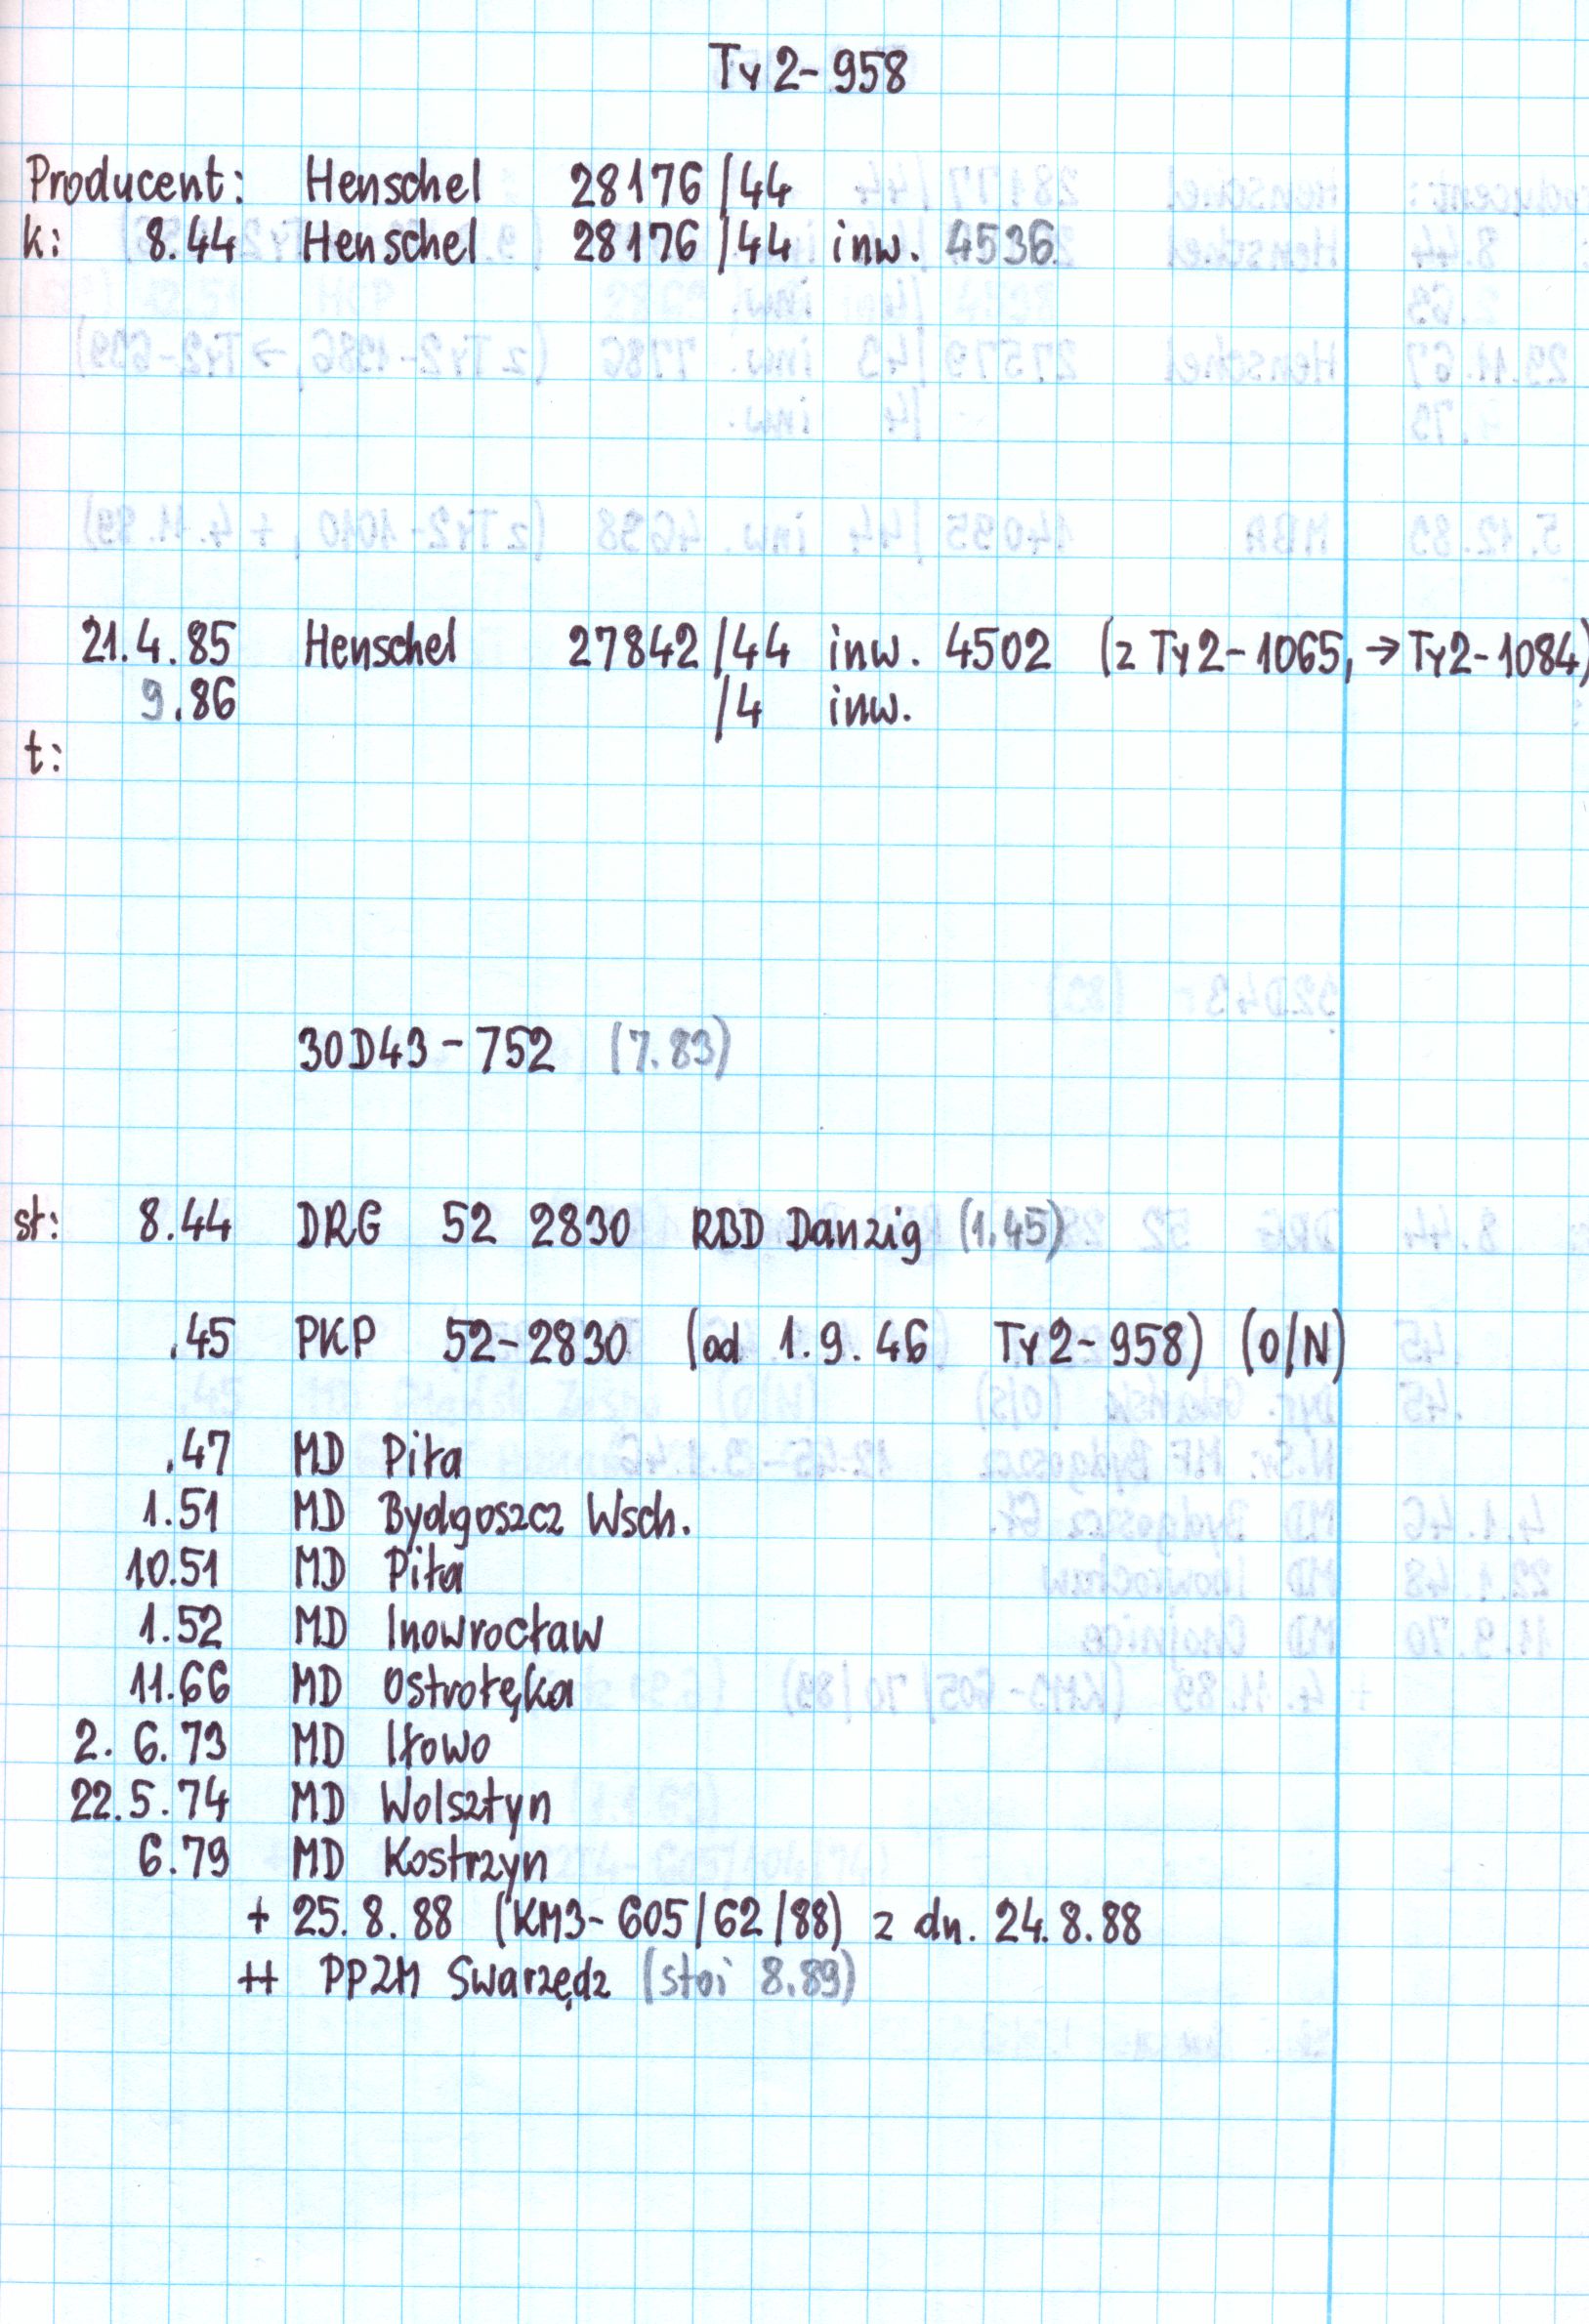 Ty2-958
Producent: Henschel 28176/44
k: 8.44 Henschel 28176/44 inw. 4536
21.4.85 Henschel 27842/44 inw. 4502 (z Ty2-1065, → Ty2-1084)
9.86 /4 inw.
t:
30D43-752 (7.83)
st: 8.44 DRG 52 2830 RBD Danzig (1.45)
.45 PKP 52-2830 (od 1.9.46 Ty2-958) (O/N)
.47 MD Piła
1.51 MD Bydgoszcz Wsch.
10.51 MD Piła
1.52 MD Inowrocław
11.66 MD Ostrołęka
2.6.73 MD Iłowo
22.5.74 MD Wolsztyn
6.79 MD Kostrzyn
+ 25.8.88 (KM3-605/62/88) z dn. 24.8.88
++ PPZM Swarzędz (stoi 8.89)